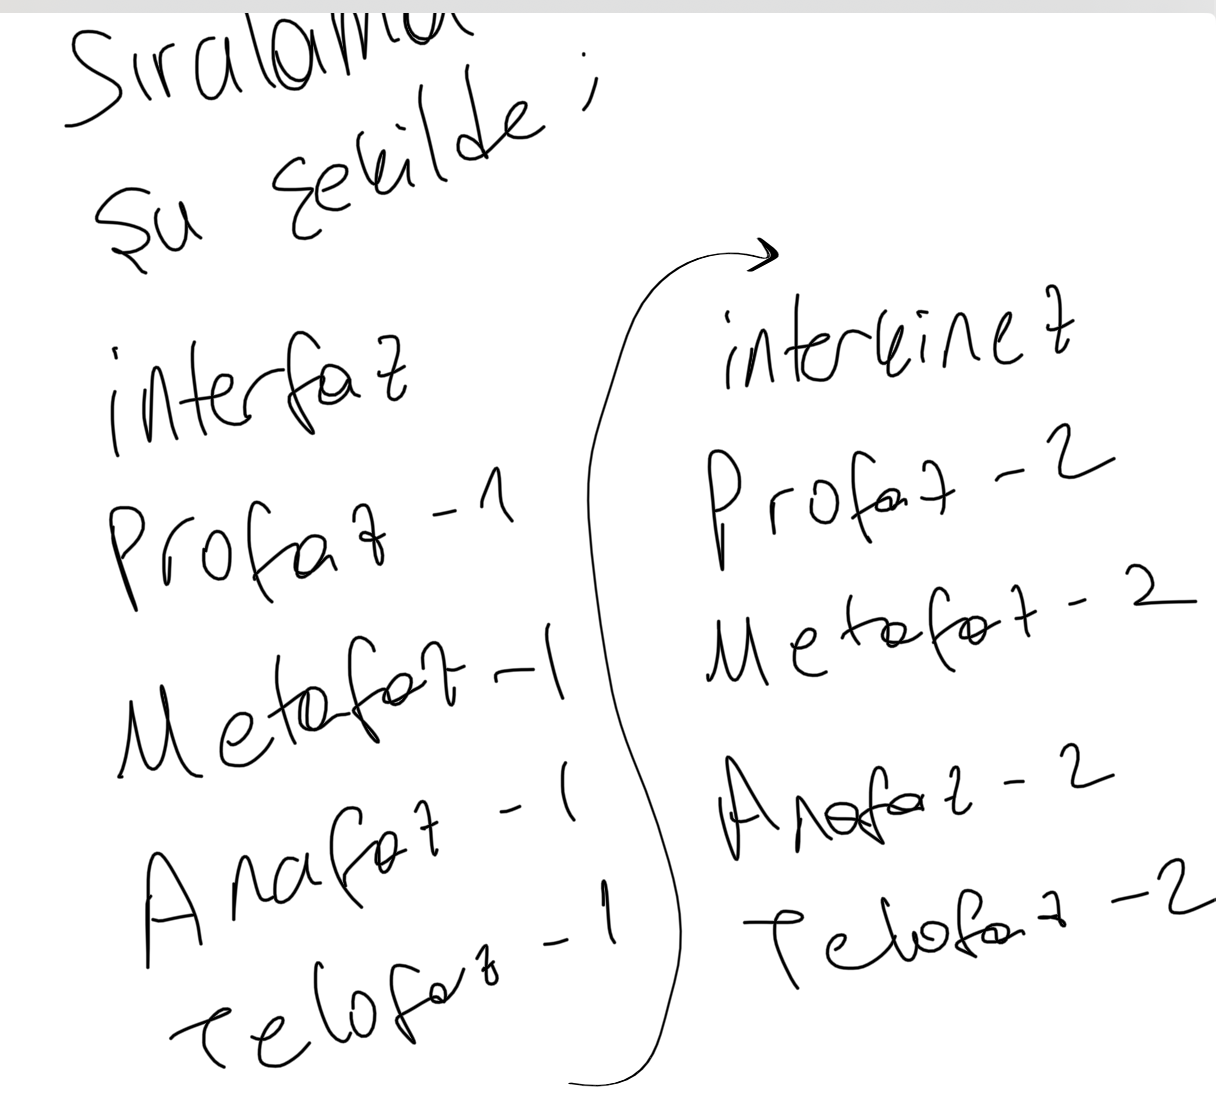 Sıralama
şu şekilde;
interfaz
Profaz - 1
Metafaz - 1
Anafaz - 1
Telofaz - 1
interkinez
Profaz - 2
Metafaz - 2
Anafaz - 2
Telofaz - 2